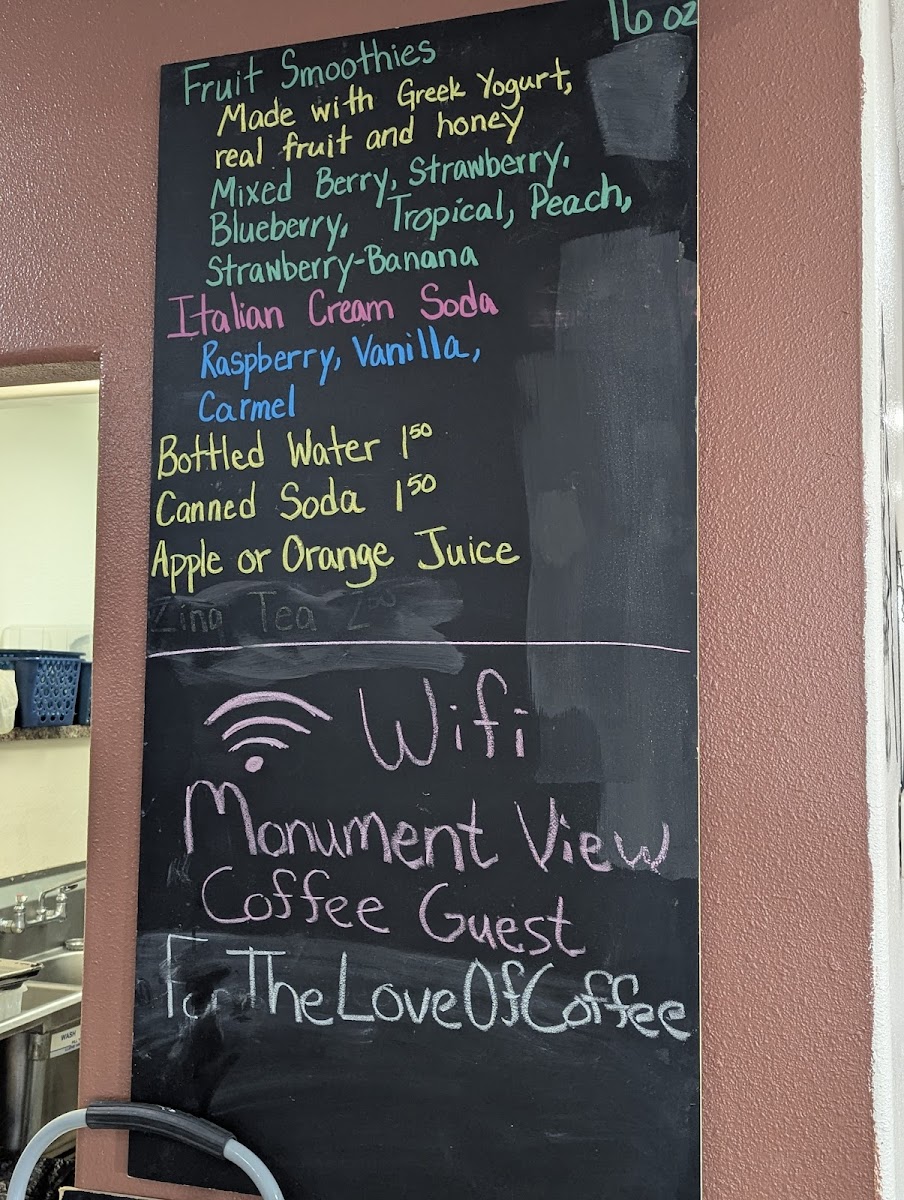 16 oz
Fruit Smoothies
Made with Greek Yogurt,
real fruit and honey
Mixed Berry, Strawberry,
Blueberry, Tropical, Peach,
Strawberry-Banana
Italian Cream Soda
Raspberry, Vanilla,
Carmel
Bottled Water 1 50
Canned Soda 1 50
Apple or Orange Juice
Zing Tea 2 00
Wifi
Monument View
Coffee Guest
ForTheLoveOfCoffee
WASH